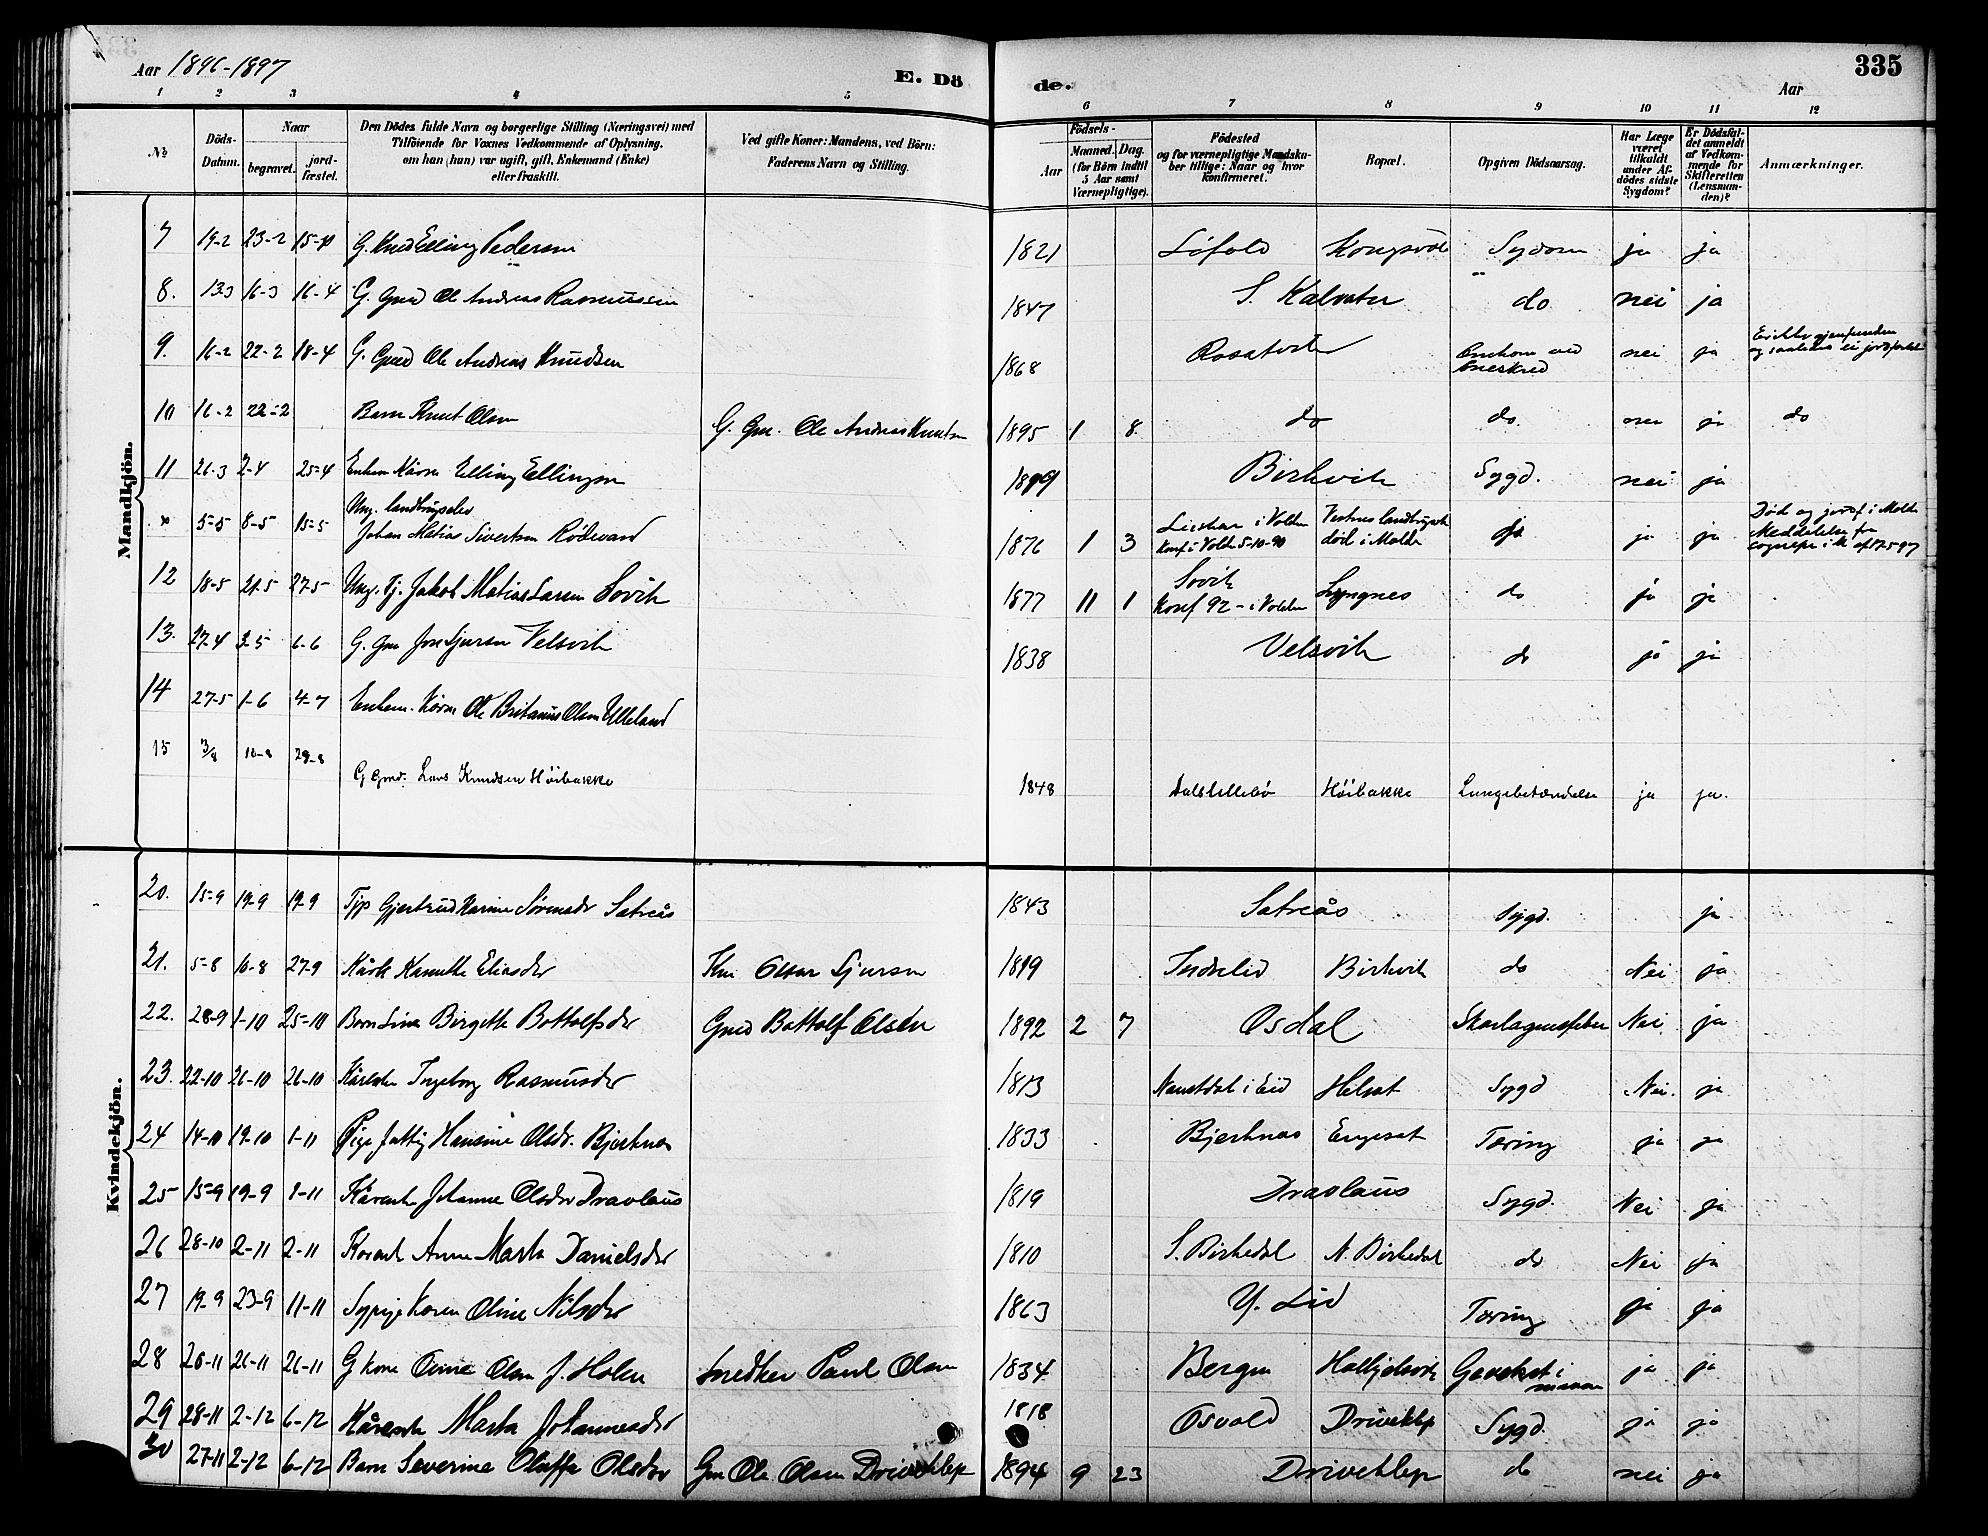 Aar 1896-1897
E. Dö
de.
335
Aar
1 2 3 4 5 6 7 8 9 10 11 12
No
Döds-Datum.
Naar
begravet.
jord-fæstet.
Den Dödes fulde Navn og borgerlige Stilling (Næringsvei) med
Tilföiende for Voxnes Vedkommende af Oplysning,
om han (hun) var ugift, gift, Enkemand (Enke)
eller fraskilt.
Ved gifte Koner: Mandens, ved Börn:
Faderens Navn og Stilling.
Födsels-
Aar
Maaned. Dag.
(for Börn indtil
5 Aar samt
Værnepligtige).
Födested
og for værnepligtige Mandska-
ber tillige: Naar og hvor
konfirmeret.
Bopæl.
Opgiven Dödsaarsag.
Har Læge
været
tilkaldt
under Af-
dödes sidste
Sygdom?
Er Dödsfal-
det anmeldt
af Vedkom-
mende for
Skifteretten
(Lensman-
den)?
Anmærkninger.
Mandkjön.
7 19-2 23-2 15-10 G. Elling Pedersen 1821 Lifold Sygdom ja ja
8. 13-3 16-3 16-4 G. Gmd Ole Andreas Rasmussen 1847 S. Kalvatn do nei ja
9. 16-2 22-2 18-4 G. Gmd Ole Andreas Knudsen 1868 Rosatvik Omkom ved Sneskred nei ja Er ikke gjenfunden og saaledes ei
10 16-2 22-2 Barn Knut Olsen G. Gm. Ole Andreas Knutsen 1895 1 8 do do nei ja do
11 26-3 2-4 25-4 Enkem Elling Ellingsen Birkvik Sygd. nei ja
5-5 8-5 15-5 Ung. landbrugselev
Johan Matias Sivertsen Rödevand 1876 1 3 i Volden Konf i Volden 5-10-90 död i Molde do ja ja Död og jordf i Molde Meddelelse fra
12 18-5 21-5 27-5 Ung. Tj. Jakob Matias Larsen Lovik 1877 11 1 Lovik Konf 92 - i Volden Lyngnes do ja ja
13. 27-4 3-5 6-6 G. Gm Jon Sjursen Velsvik 1838 Velsvik do ja ja
14 27-5 1-6 4-7 Enkem. Ole Britanus Olsen Ulleland
15 3/8 10-8 29-8 G Gmd. Lars Knudsen Höibakke 1848 Dalstillebö Höibakke Lungebetændelse ja ja.
Kvindekjön.
20. 15-9 19-9 19-9 Gjertrud Karine Sörensdr Satreås 1843 Satreås Sygd. ja
21. 5-8 10-8 27-9 Kanutte Eliasdr Sjursen 1819 Indselid Birkvik do Nei ja
22. 28-9 1-10 25-10 Barn Lina Birgitte Bottolfsdr Gmd Bottolf Olsen 1892 2 7 Osdal Skarlagensfeber Nei ja
23. 22-10 26-10 26-10 Ingeborg Rasmusdr 1813 Naustdal i Eid Helset Sygd Nei. ja
24 14-10 19-10 1-11 Pige Hansine Olsdr. Bjerknes 1833 Bjerknes Engeset Tæring ja ja
25 15-9 19-9 1-11 Johanne Olsdr Dravlaus 1819 Dravlaus Sygd. Nei ja
26 28-10 2-11 2-11 Anne Marta Danielsdr 1810 S. Birkedal N. Birkedal do Nei ja
27 19-9 23-9 11-11 Sypige Karen Oline Nilsdr 1863 Y. Lid Tæring ja ja
28 20-11 26-11 26-11 G kone Olsen J. Holen Snedker Paul Olsen 1834 Bergen ja ja
29 28-11 2-12 6-12 Marta Johannesdr 1818 Osvold Driveklep Sygd. ja ja
30 27-11 2-12 6-12 Barn Severine Oluffa Olsdr Gm Ole Olsen Driveklep 1894 9 23 Driveklep do nei ja